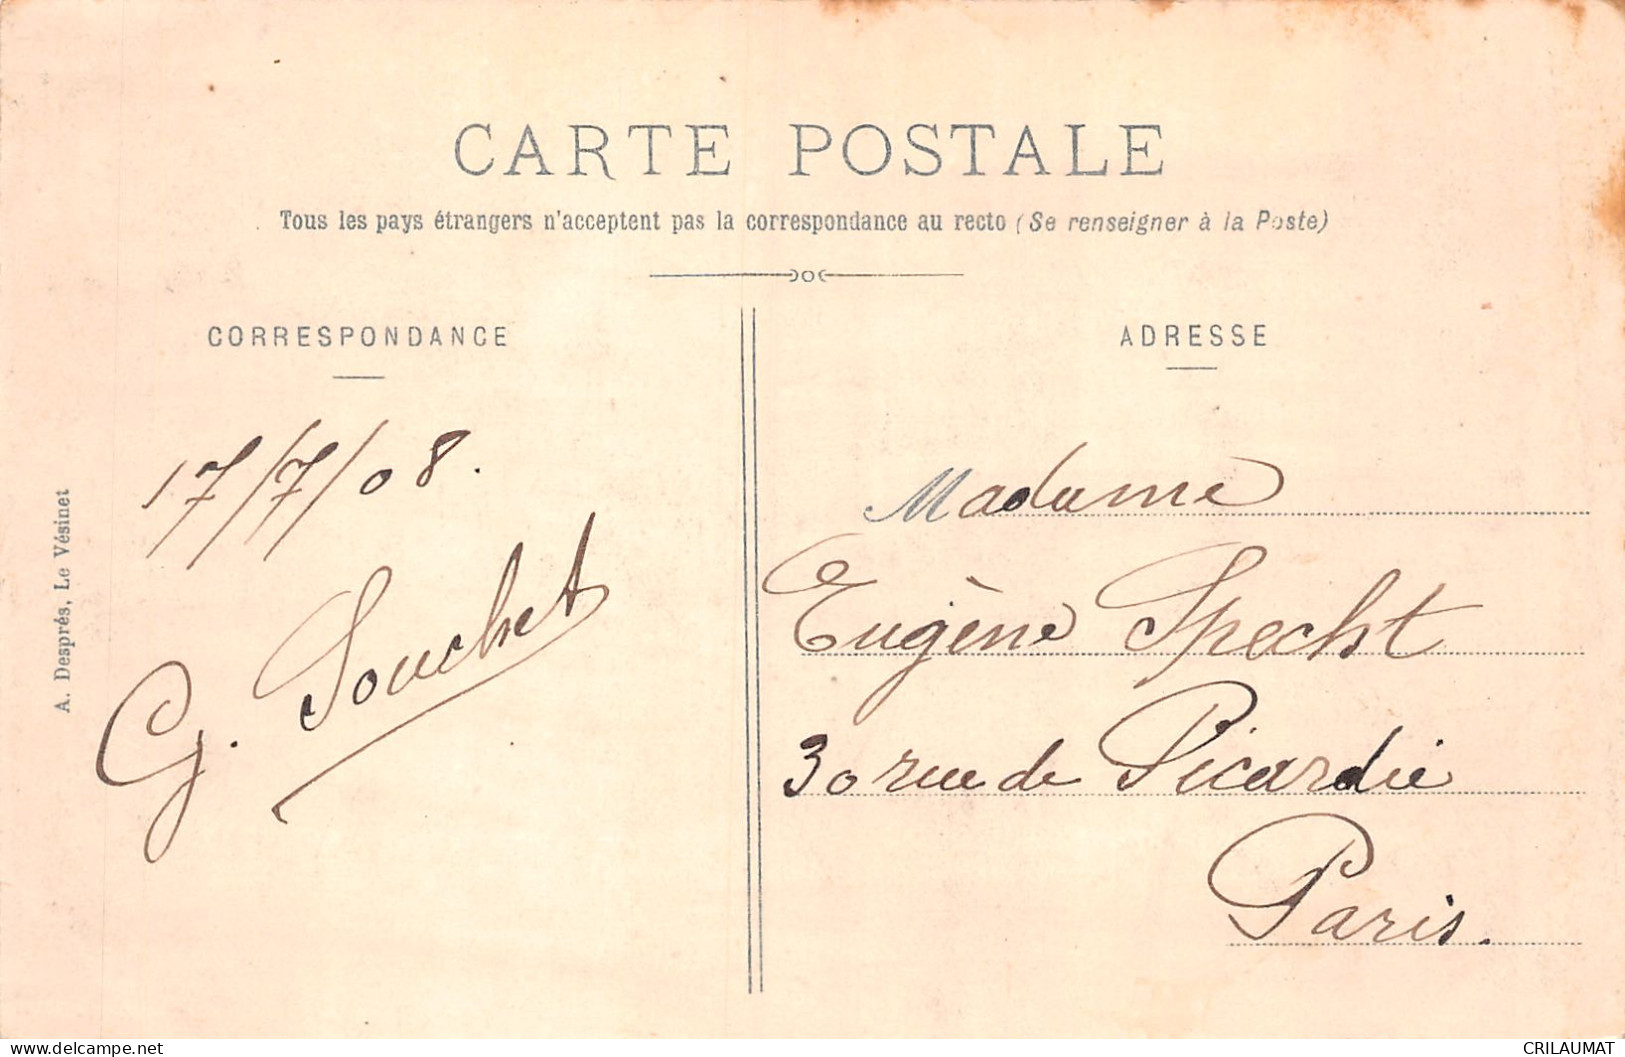 CARTE POSTALE
Tous les pays étrangers n'acceptent pas la correspondance au recto (Se renseigner à la Poste)
CORRESPONDANCE
ADRESSE
17/7/08.
G. Souchet
A. Després, Le Vésinet
Madame
Eugène Specht
30 rue de Picardie
Paris.
www.delcampe.net
CRILAUMAT